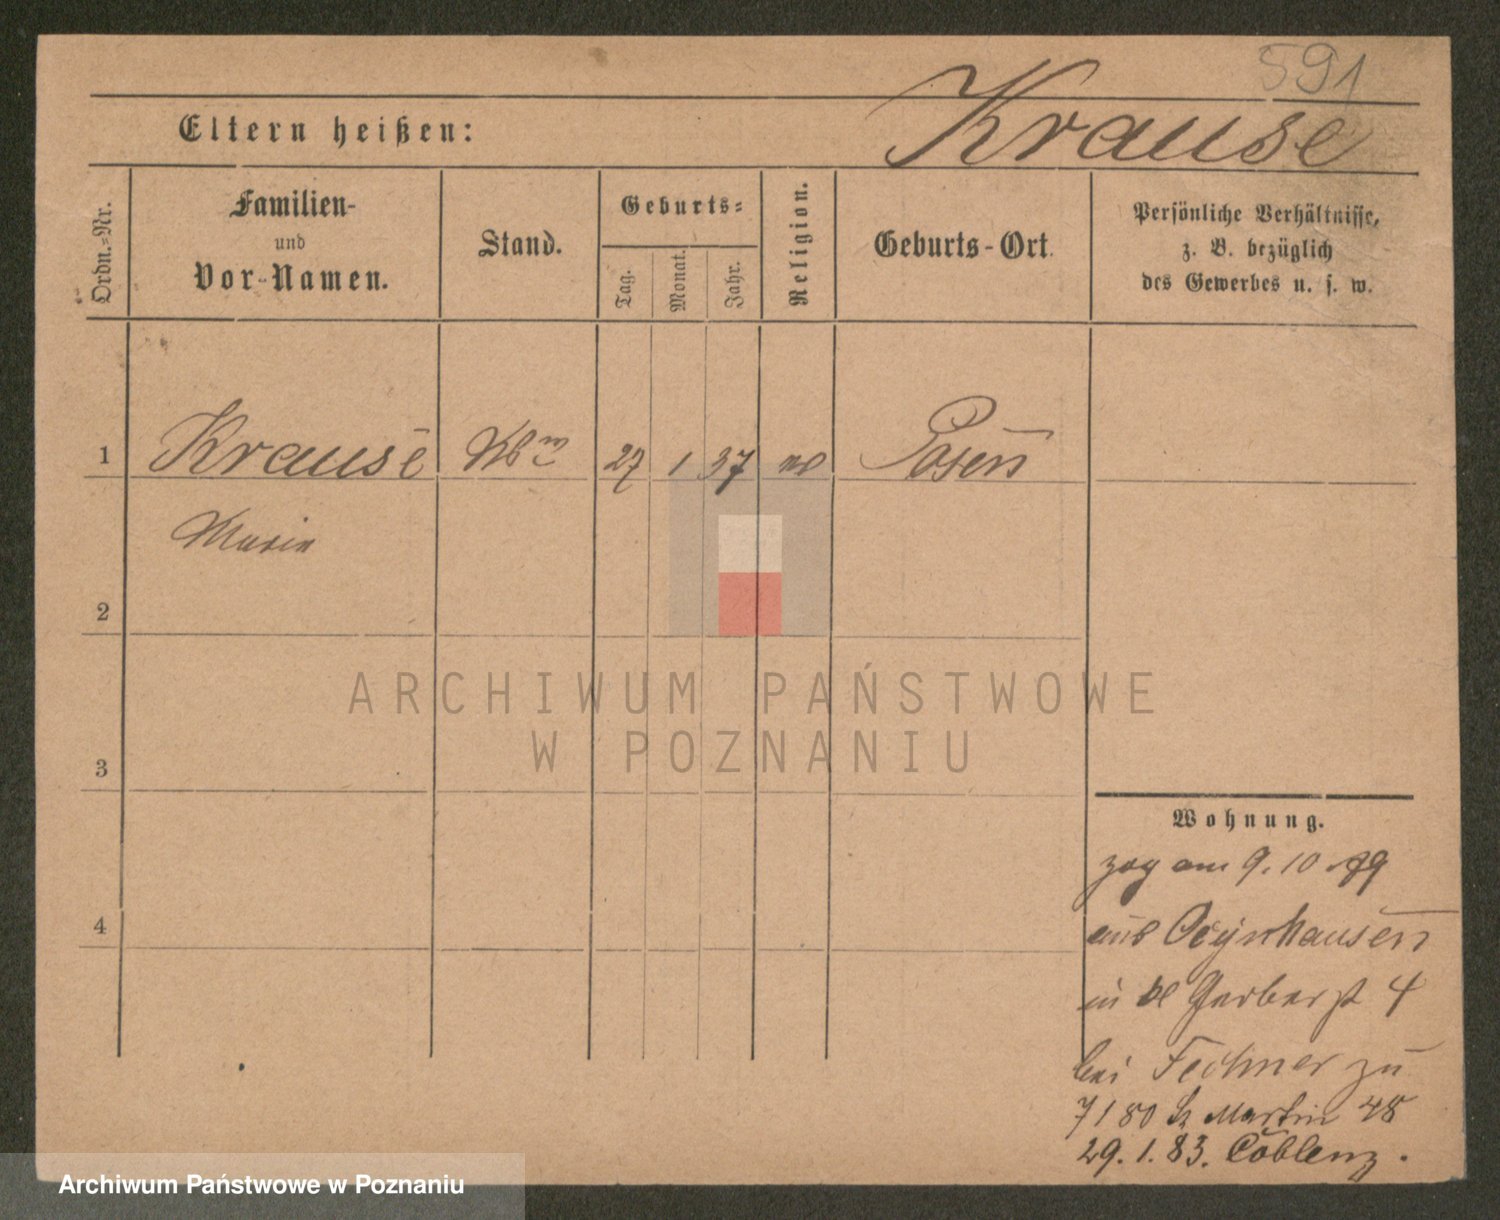 591
Krause
Eltern heißen:
Ordn.=Nr.
Familien-
und
Vor-Namen.
Stand.
Geburts=
Tag.
Monat.
Jahr.
Religion.
Geburts-Ort.
Persönliche Verhältnisse,
z. B. bezüglich
des Gewerbes u. s. w.
1 Krause 27 1 37 Posen
Marie
2
3
4
ARCHIWUM PAŃSTWOWE
W POZNANIU
Wohnung.
zog am 9. 10 79
aus Oeynhausen
in kl Gerberst 4
bei Fechner zu
7/80 St Martin 48
29. 1. 83. Coblenz.
Archiwum Państwowe w Poznaniu